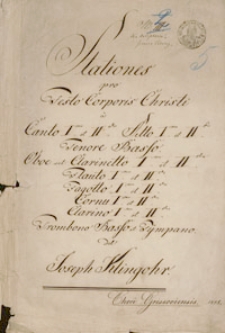 Stationes
pro
Festo Corporis Christi
à
Canto I.mo et II.do Alto I.mo et II.do
Tenore Basso.
Oboe vel Clarinetto I.mo et II.do
Flauto I.mo et II.do
Fagotto I.mo et II.do
Cornu I.mo et II.do
Clarino I.mo et II.do
Trombono Basso et Tympano.
Joseph Schlingohr.
Chori